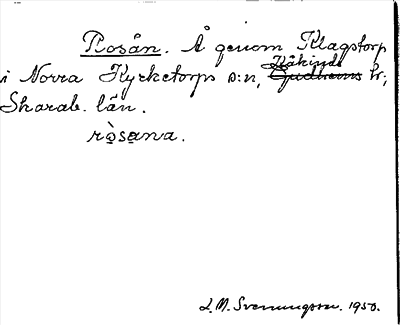 Rosån. Å genom Klagstorp
Kåkinds
i Norra Kyrketorps s:n, Gudhems hr;
Skarab. län.
ròsana.
L.M. Svenungsson. 1950.